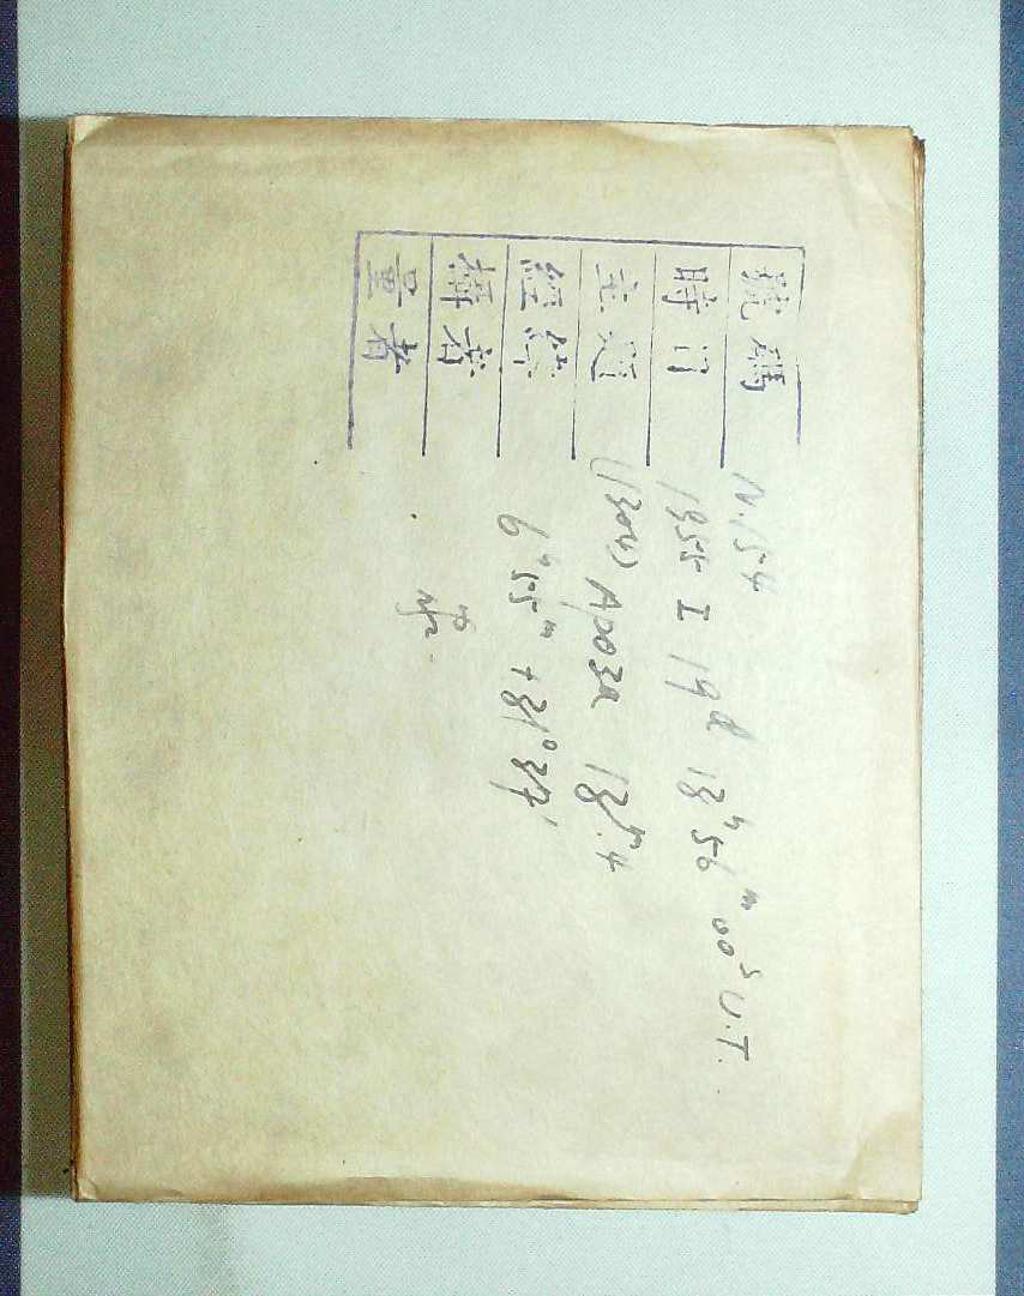 號碼 N.154
時间 1955 I 19ᵈ 13ʰ56ᵐ00ˢ U.T.
主题 (1304) Apoза 13ᵐ.4
經緯 6ʰ55ᵐ +31°37′
攝者
量者